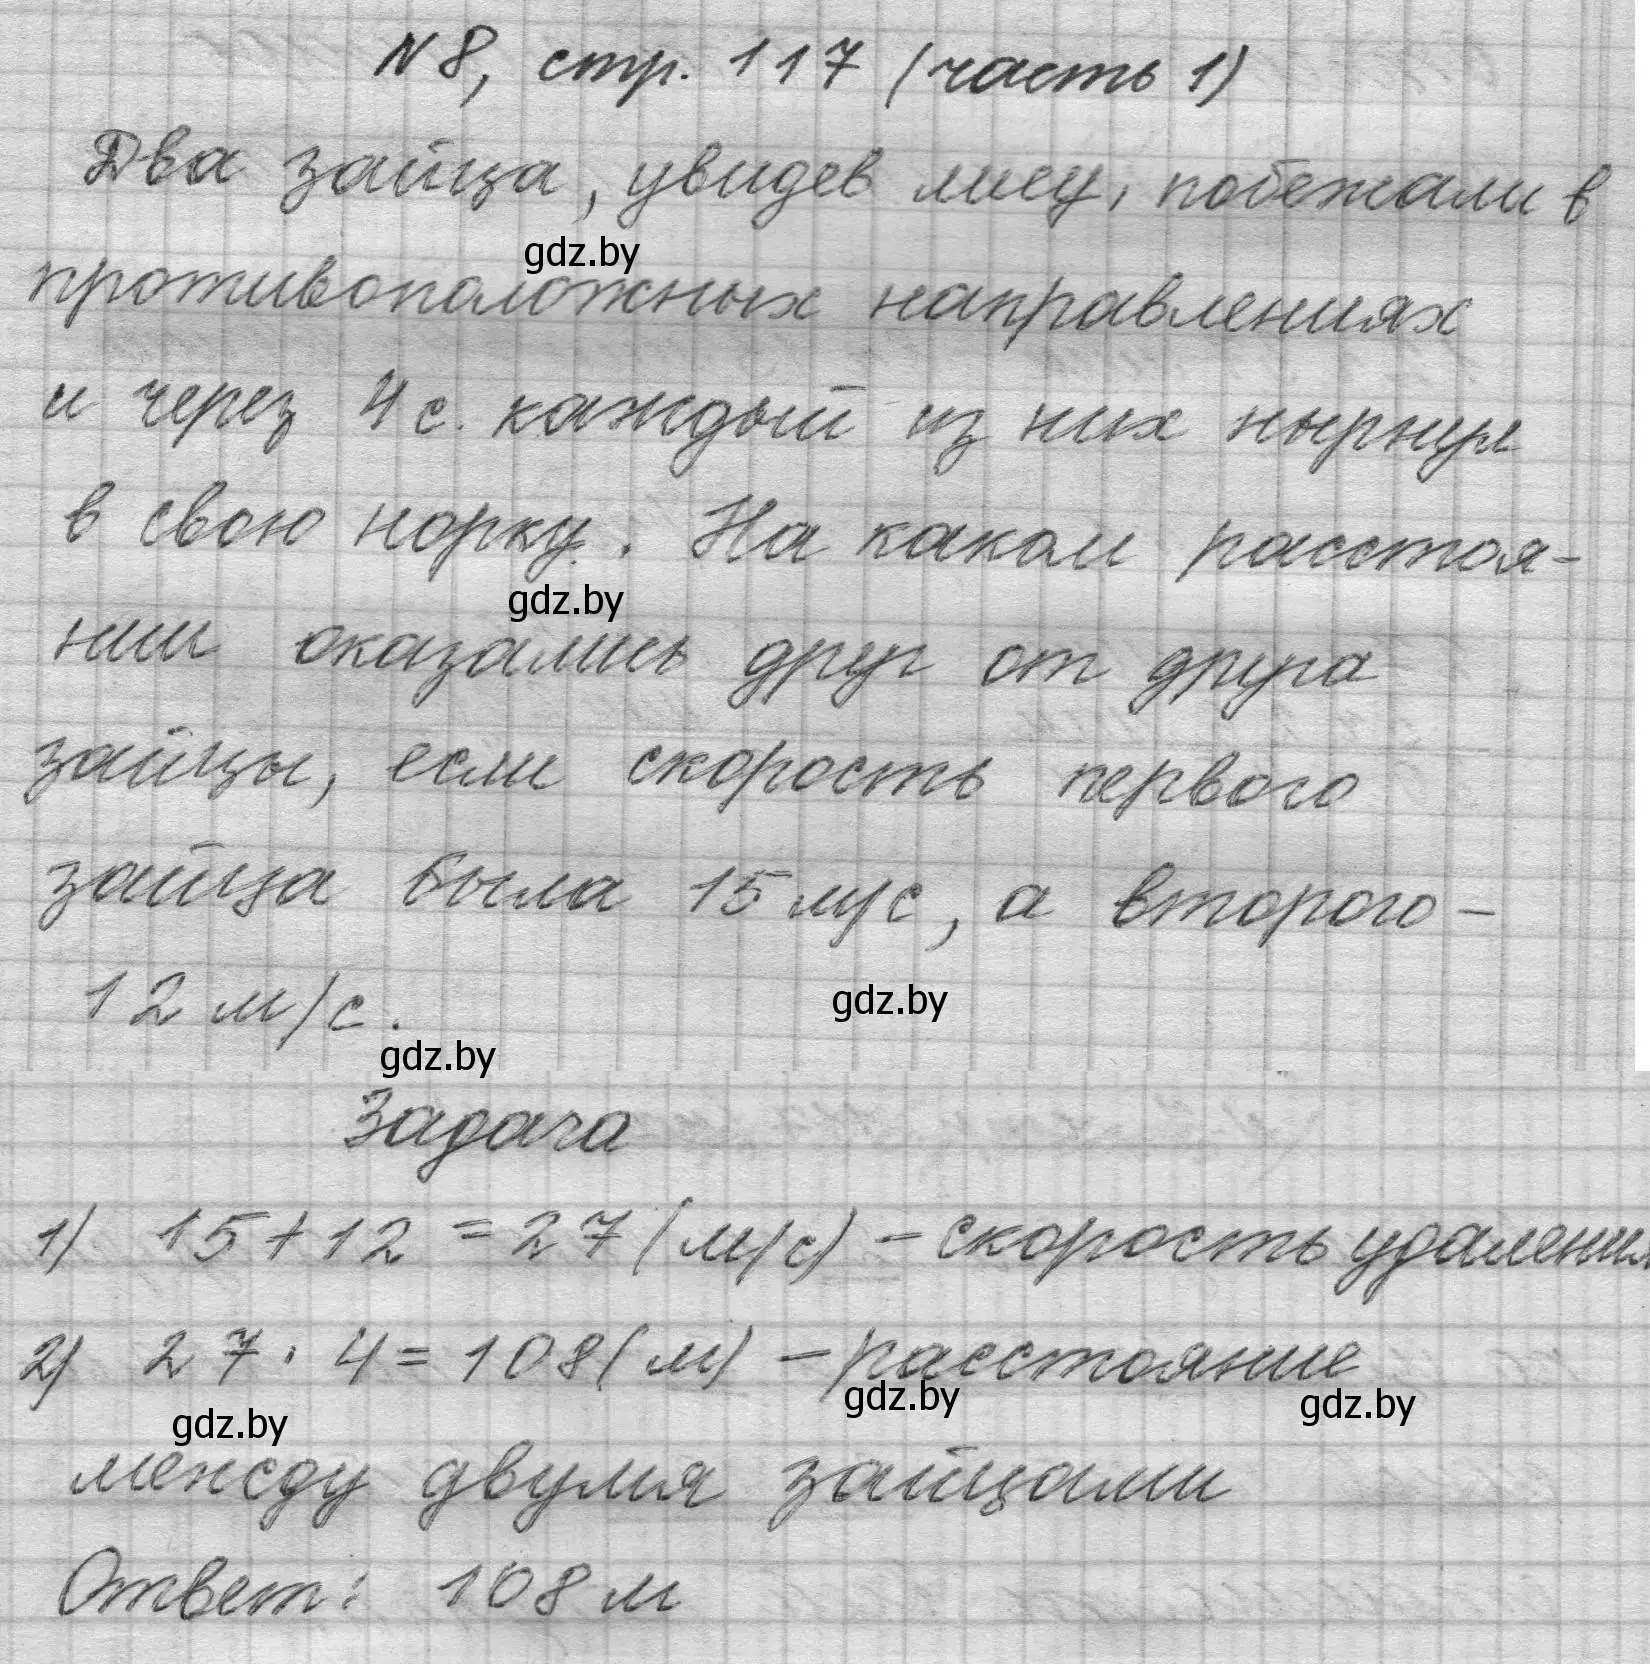 N8, стр. 117 (часть 1)
Два зайца, увидев лису, побежали в
gdz.by
противоположных направлениях
и через 4 с. каждый из них нырнул
в свою норку. На каком расстоя-
gdz.by
нии оказались друг от друга
зайцы, если скорость первого
зайца была 15 м/с, а второго -
12 м/с.
gdz.by
gdz.by
Задача
1) 15 + 12 = 27 (м/с) - скорость удаления
2) 27 · 4 = 108 (м) - расстояние
gdz.by
gdz.by
gdz.by
между двумя зайцами
Ответ: 108 м